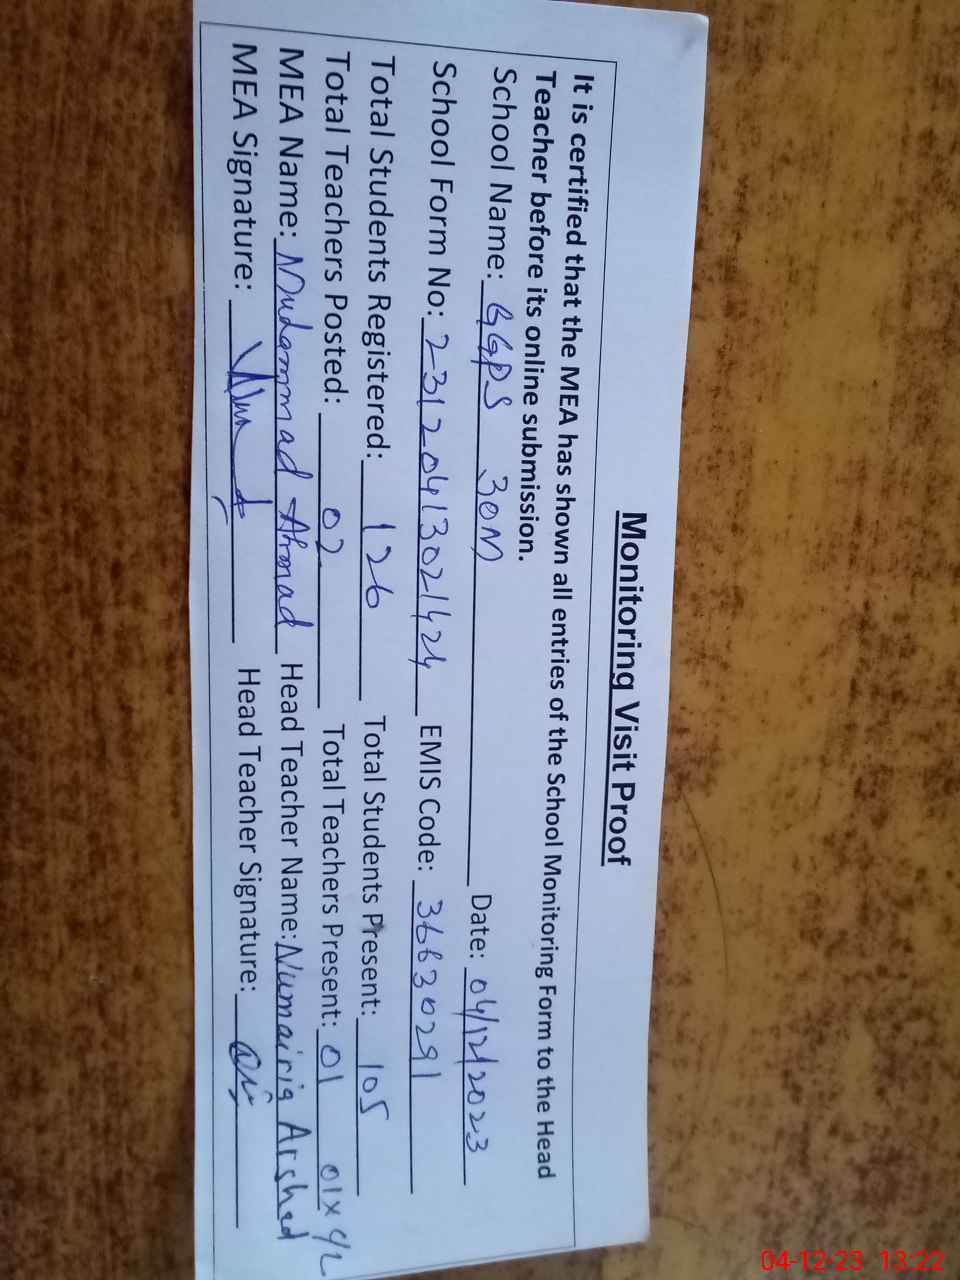 Monitoring Visit Proof
It is certified that the MEA has shown all entries of the School Monitoring Form to the Head
Teacher before its online submission.
School Name: GGPS 30M Date: 04/12/2023
School Form No: 23120413021424 EMIS Code: 36630291
Total Students Registered: 126 Total Students Present: 105
Total Teachers Posted: 02 Total Teachers Present: 01 01x C/L
MEA Name: Muhammad Ahmad Head Teacher Name: Numairia Arshed
MEA Signature: Head Teacher Signature:
04-12-23 13:22